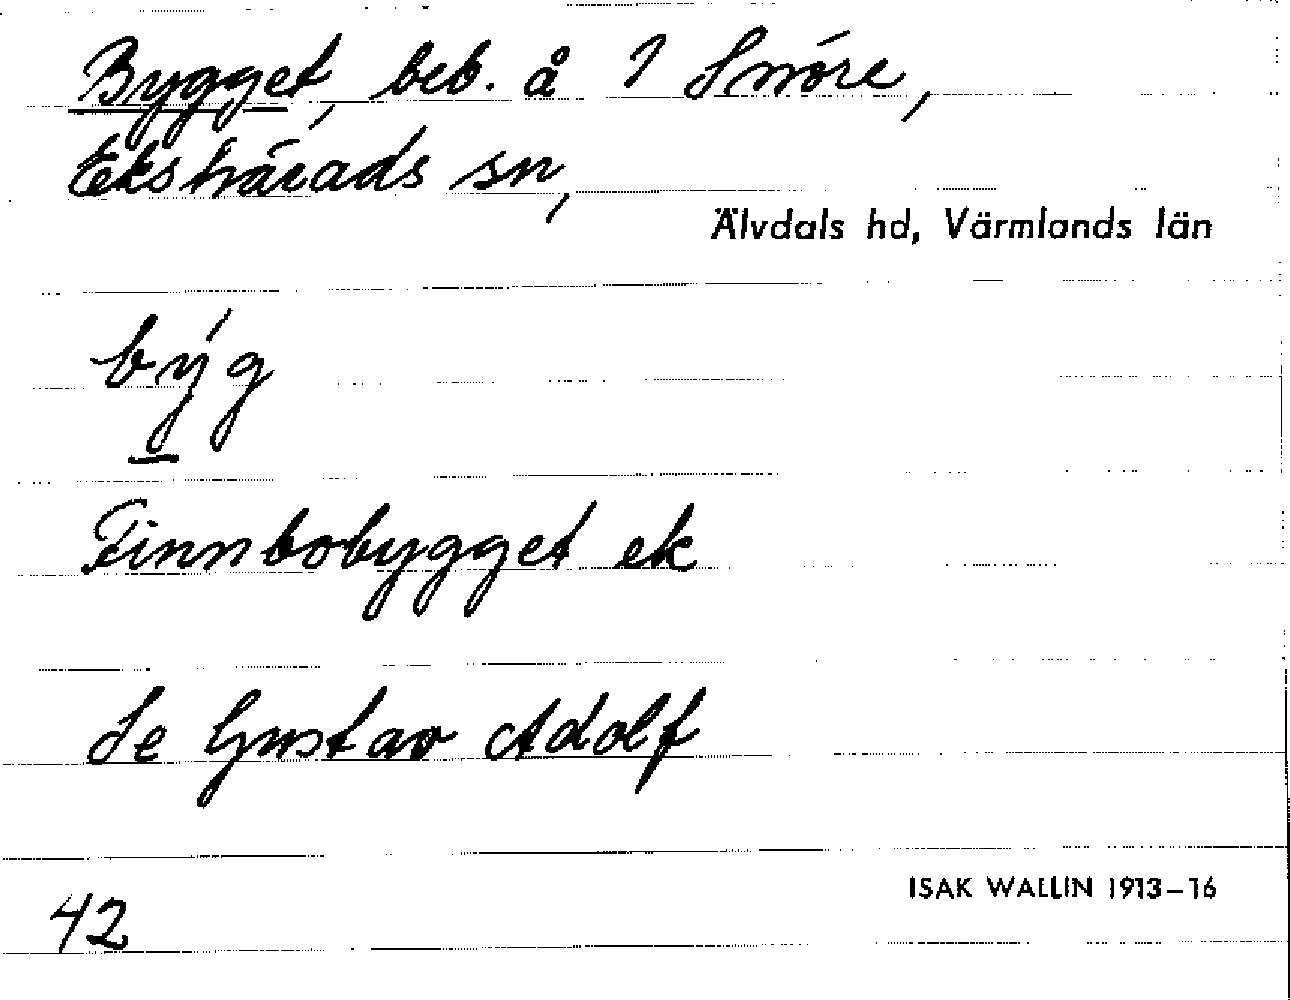 Bygget, beb. å 1 Smöre,
Ekshärads sn,
Älvdals hd, Värmlands län
bý̱g
Finnbobygget ek
Se Gustav Adolf
ISAK WALLIN 1913–16
42